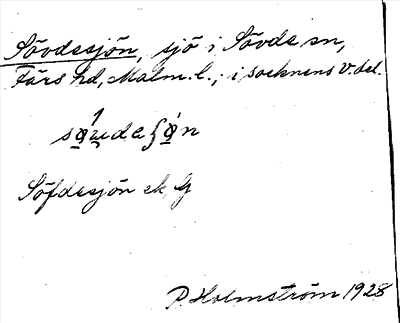 Sövdesjön, sjö i Sövde sn,
Färs hd, Malm. l.; i socknens V. del.
Söfdesjön ek
P. Holmström 1928